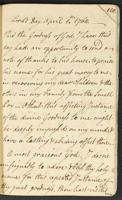 Lord's Day April 1.
Thro' the Goodness of God, I have this
day had an opportunity to send a
note of thanks to his house, to praise
his name for his great mercy to me,
in recovering my dear Children & the
others in my family from the Small
Pox. O that this affecting Instance
of the divine Goodness to me might
be deeply impressed on my mind &
have a lasting & abiding effect there.
O most gracious God, I desire
humbly to adore thy holy
name for this
thy great goodness, thou hast visited